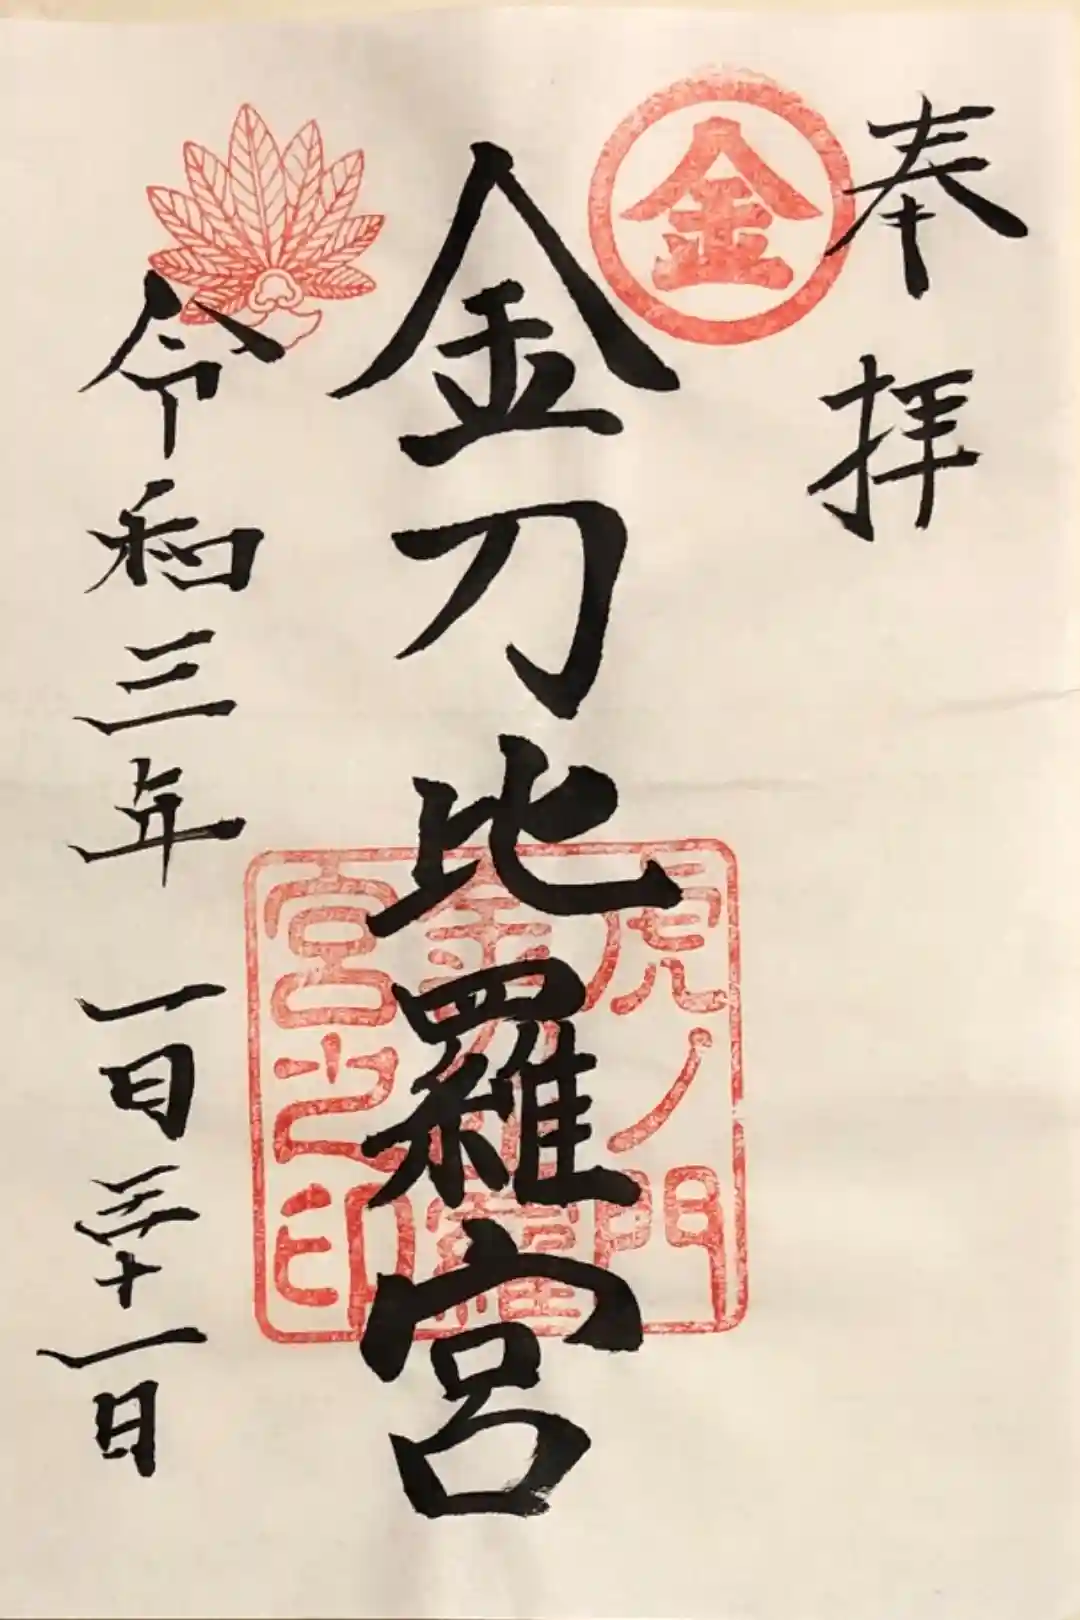 奉拝
金
金刀比羅宮
虎ノ門
金刀比羅
宮之印
令和三年一月三十一日